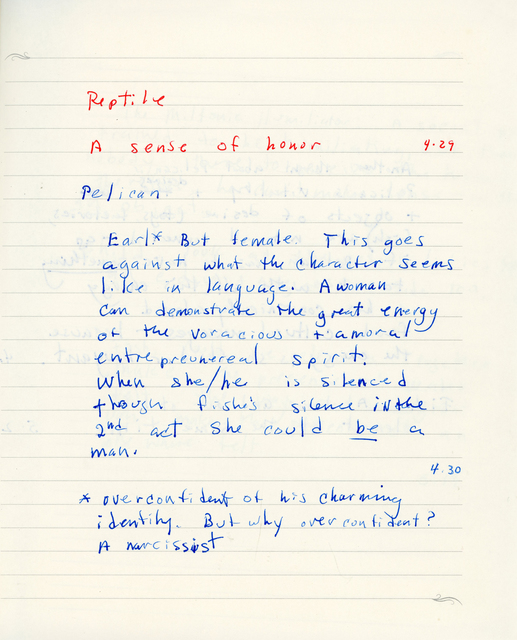 Reptile
A sense of honor 4.29
Pelican
Earl* But female. This goes
against what the character seems
like in language. A woman
can demonstrate the great energy
of the voracious + amoral
entrepreunereal spirit.
When she/he is silenced
though fishe's silence in the
2nd act she could be a
man.
4.30
* overconfident of his charming
identity. But why overconfident?
A narcissist